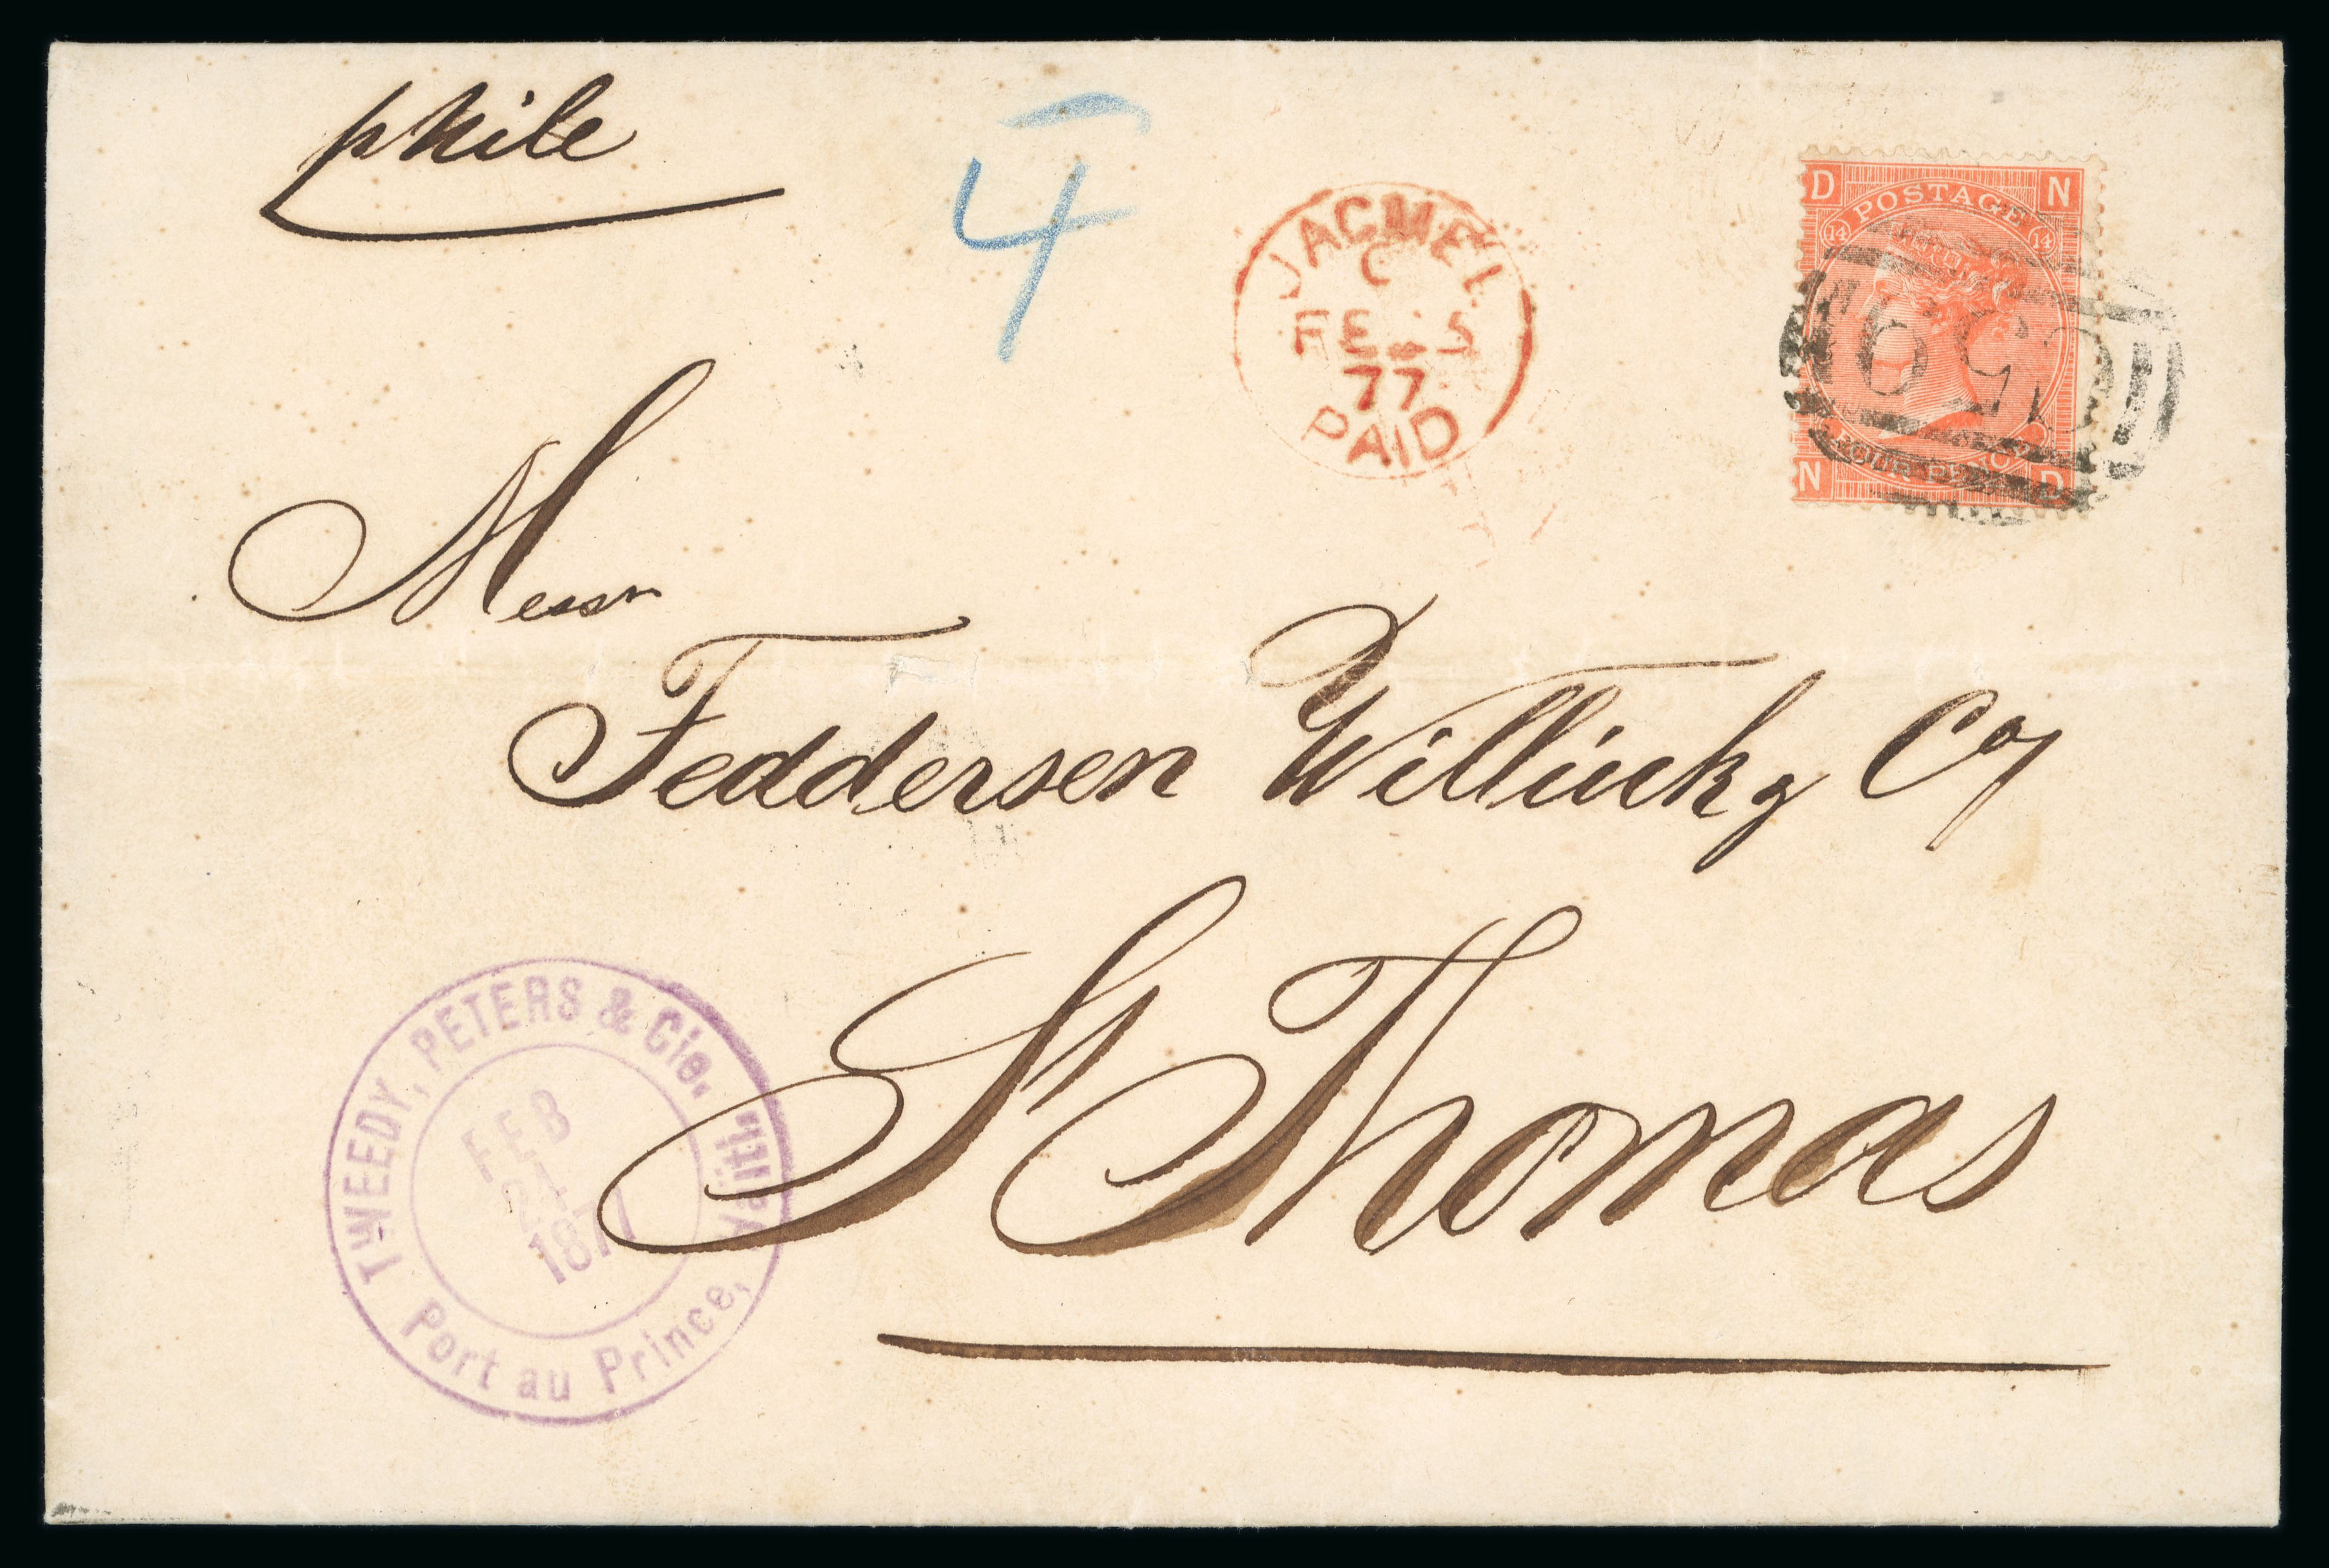 p Nile
4
JACMEL
C
FE 5
77
PAID
D N
POSTAGE
14 14
FOUR PENCE
N D
C59
Messrs
Feddersen Willink & Co/
St Thomas
TWEEDY, PETERS & Cie.
FEB
1877
Port au Prince, Haïti.